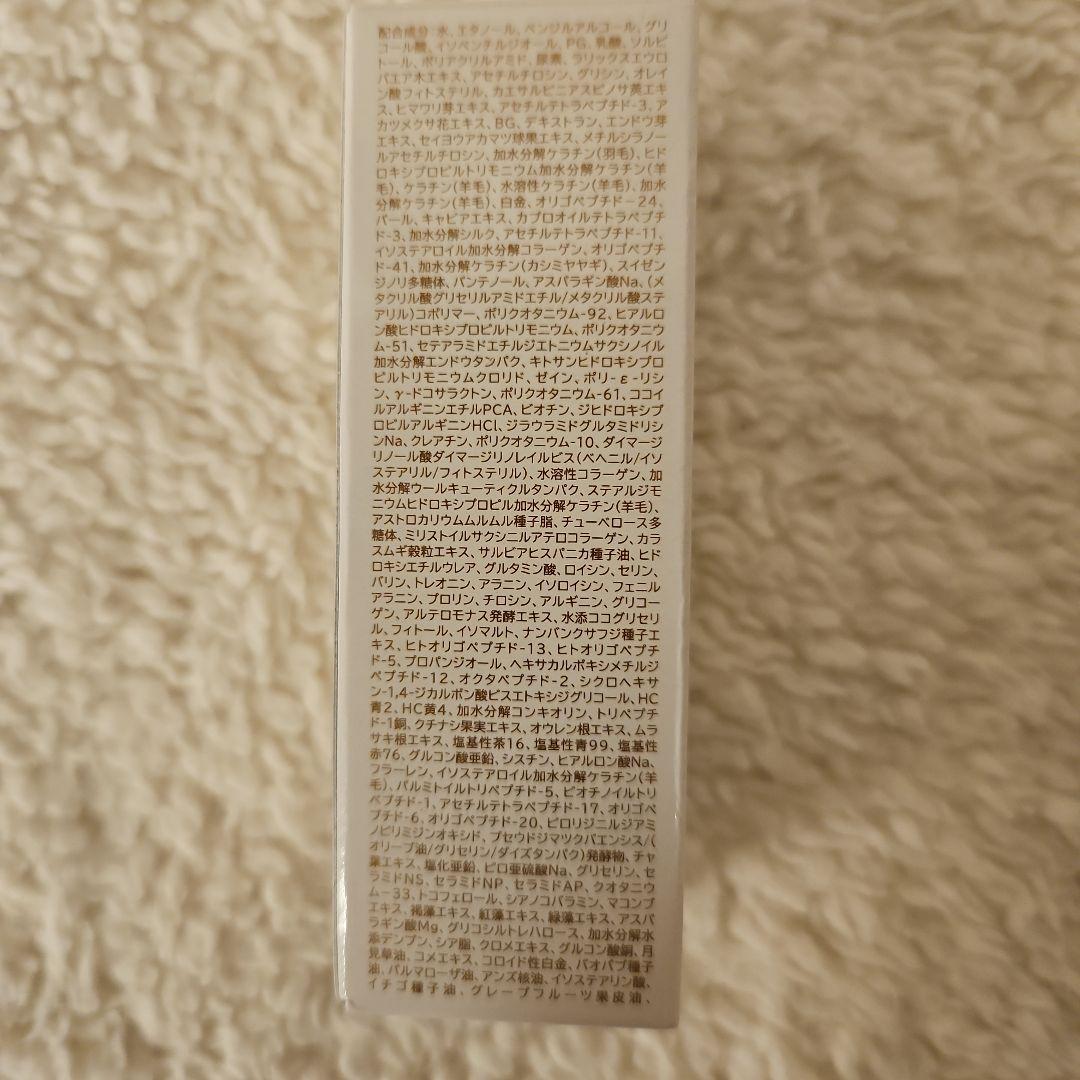 配合成分:水、エタノール、ベンジルアルコール、グリ
コール酸、イソペンチルジオール、PG、乳酸、ソルビ
トール、ポリアクリルアミド、尿素、ラリックスエウロ
パエア木エキス、アセチルチロシン、グリシン、オレイ
ン酸フィトステリル、カエサルピニアスピノサ莢エキ
ス、ヒマワリ芽エキス、アセチルテトラペプチド-3、ア
カツメクサ花エキス、BG、デキストラン、エンドウ芽
エキス、セイヨウアカマツ球果エキス、メチルシラノー
ルアセチルチロシン、加水分解ケラチン(羽毛)、ヒド
ロキシプロピルトリモニウム加水分解ケラチン(羊
毛)、ケラチン(羊毛)、水溶性ケラチン(羊毛)、加水
分解ケラチン(羊毛)、白金、オリゴペプチド－24、
パール、キャビアエキス、カプロオイルテトラペプチ
ド-3、加水分解シルク、アセチルテトラペプチド-11、
イソステアロイル加水分解コラーゲン、オリゴペプチ
ド-41、加水分解ケラチン(カシミヤヤギ)、スイゼン
ジノリ多糖体、パンテノール、アスパラギン酸Na、(メ
タクリル酸グリセリルアミドエチル/メタクリル酸ステ
アリル)コポリマー、ポリクオタニウム-92、ヒアルロ
ン酸ヒドロキシプロピルトリモニウム、ポリクオタニウ
ム-51、セテアラミドエチルジエトニウムサクシノイル
加水分解エンドウタンパク、キトサンヒドロキシプロ
ピルトリモニウムクロリド、ゼイン、ポリ-ε-リシ
ン、γ-ドコサラクトン、ポリクオタニウム-61、ココイ
ルアルギニンエチルPCA、ビオチン、ジヒドロキシプ
ロピルアルギニンHCl、ジラウラミドグルタミドリシ
ンNa、クレアチン、ポリクオタニウム-10、ダイマージ
リノール酸ダイマージリノレイルビス(ベヘニル/イソ
ステアリル/フィトステリル)、水溶性コラーゲン、加
水分解ウールキューティクルタンパク、ステアルジモ
ニウムヒドロキシプロピル加水分解ケラチン(羊毛)、
アストロカリウムムルムル種子脂、チューベロース多
糖体、ミリストイルサクシニルアテロコラーゲン、カラ
スムギ穀粒エキス、サルビアヒスパニカ種子油、ヒド
ロキシエチルウレア、グルタミン酸、ロイシン、セリン、
バリン、トレオニン、アラニン、イソロイシン、フェニル
アラニン、プロリン、チロシン、アルギニン、グリコー
ゲン、アルテロモナス発酵エキス、水添ココグリセリ
ル、フィトール、イソマルト、ナンバンクサフジ種子エ
キス、ヒトオリゴペプチド-13、ヒトオリゴペプチ
ド-5、プロパンジオール、ヘキサカルボキシメチルジ
ペプチド-12、オクタペプチド-2、シクロヘキサ
ン-1,4-ジカルボン酸ビスエトキシジグリコール、HC
青2、HC黄4、加水分解コンキオリン、トリペプチ
ド-1銅、クチナシ果実エキス、オウレン根エキス、ムラ
サキ根エキス、塩基性茶16、塩基性青99、塩基性
赤76、グルコン酸亜鉛、シスチン、ヒアルロン酸Na、
フラーレン、イソステアロイル加水分解ケラチン(羊
毛)、パルミトイルトリペプチド-5、ビオチノイルトリ
ペプチド-1、アセチルテトラペプチド-17、オリゴペ
プチド-6、オリゴペプチド-20、ピロリジニルジアミ
ノピリミジンオキシド、プセウドジマツクバエンシス/(
オリーブ油/グリセリン/ダイズタンパク)発酵物、チャ
葉エキス、塩化亜鉛、ピロ亜硫酸Na、グリセリン、セ
ラミドNS、セラミドNP、セラミドAP、クオタニウ
ム－33、トコフェロール、シアノコバラミン、マコンブ
エキス、褐藻エキス、紅藻エキス、緑藻エキス、アスパ
ラギン酸Mg、グリコシルトレハロース、加水分解水
添デンプン、シア脂、クロメエキス、グルコン酸銅、月
見草油、コメエキス、コロイド性白金、バオバブ種子
油、パルマローザ油、アンズ核油、イソステアリン酸、
イチゴ種子油、グレープフルーツ果皮油、